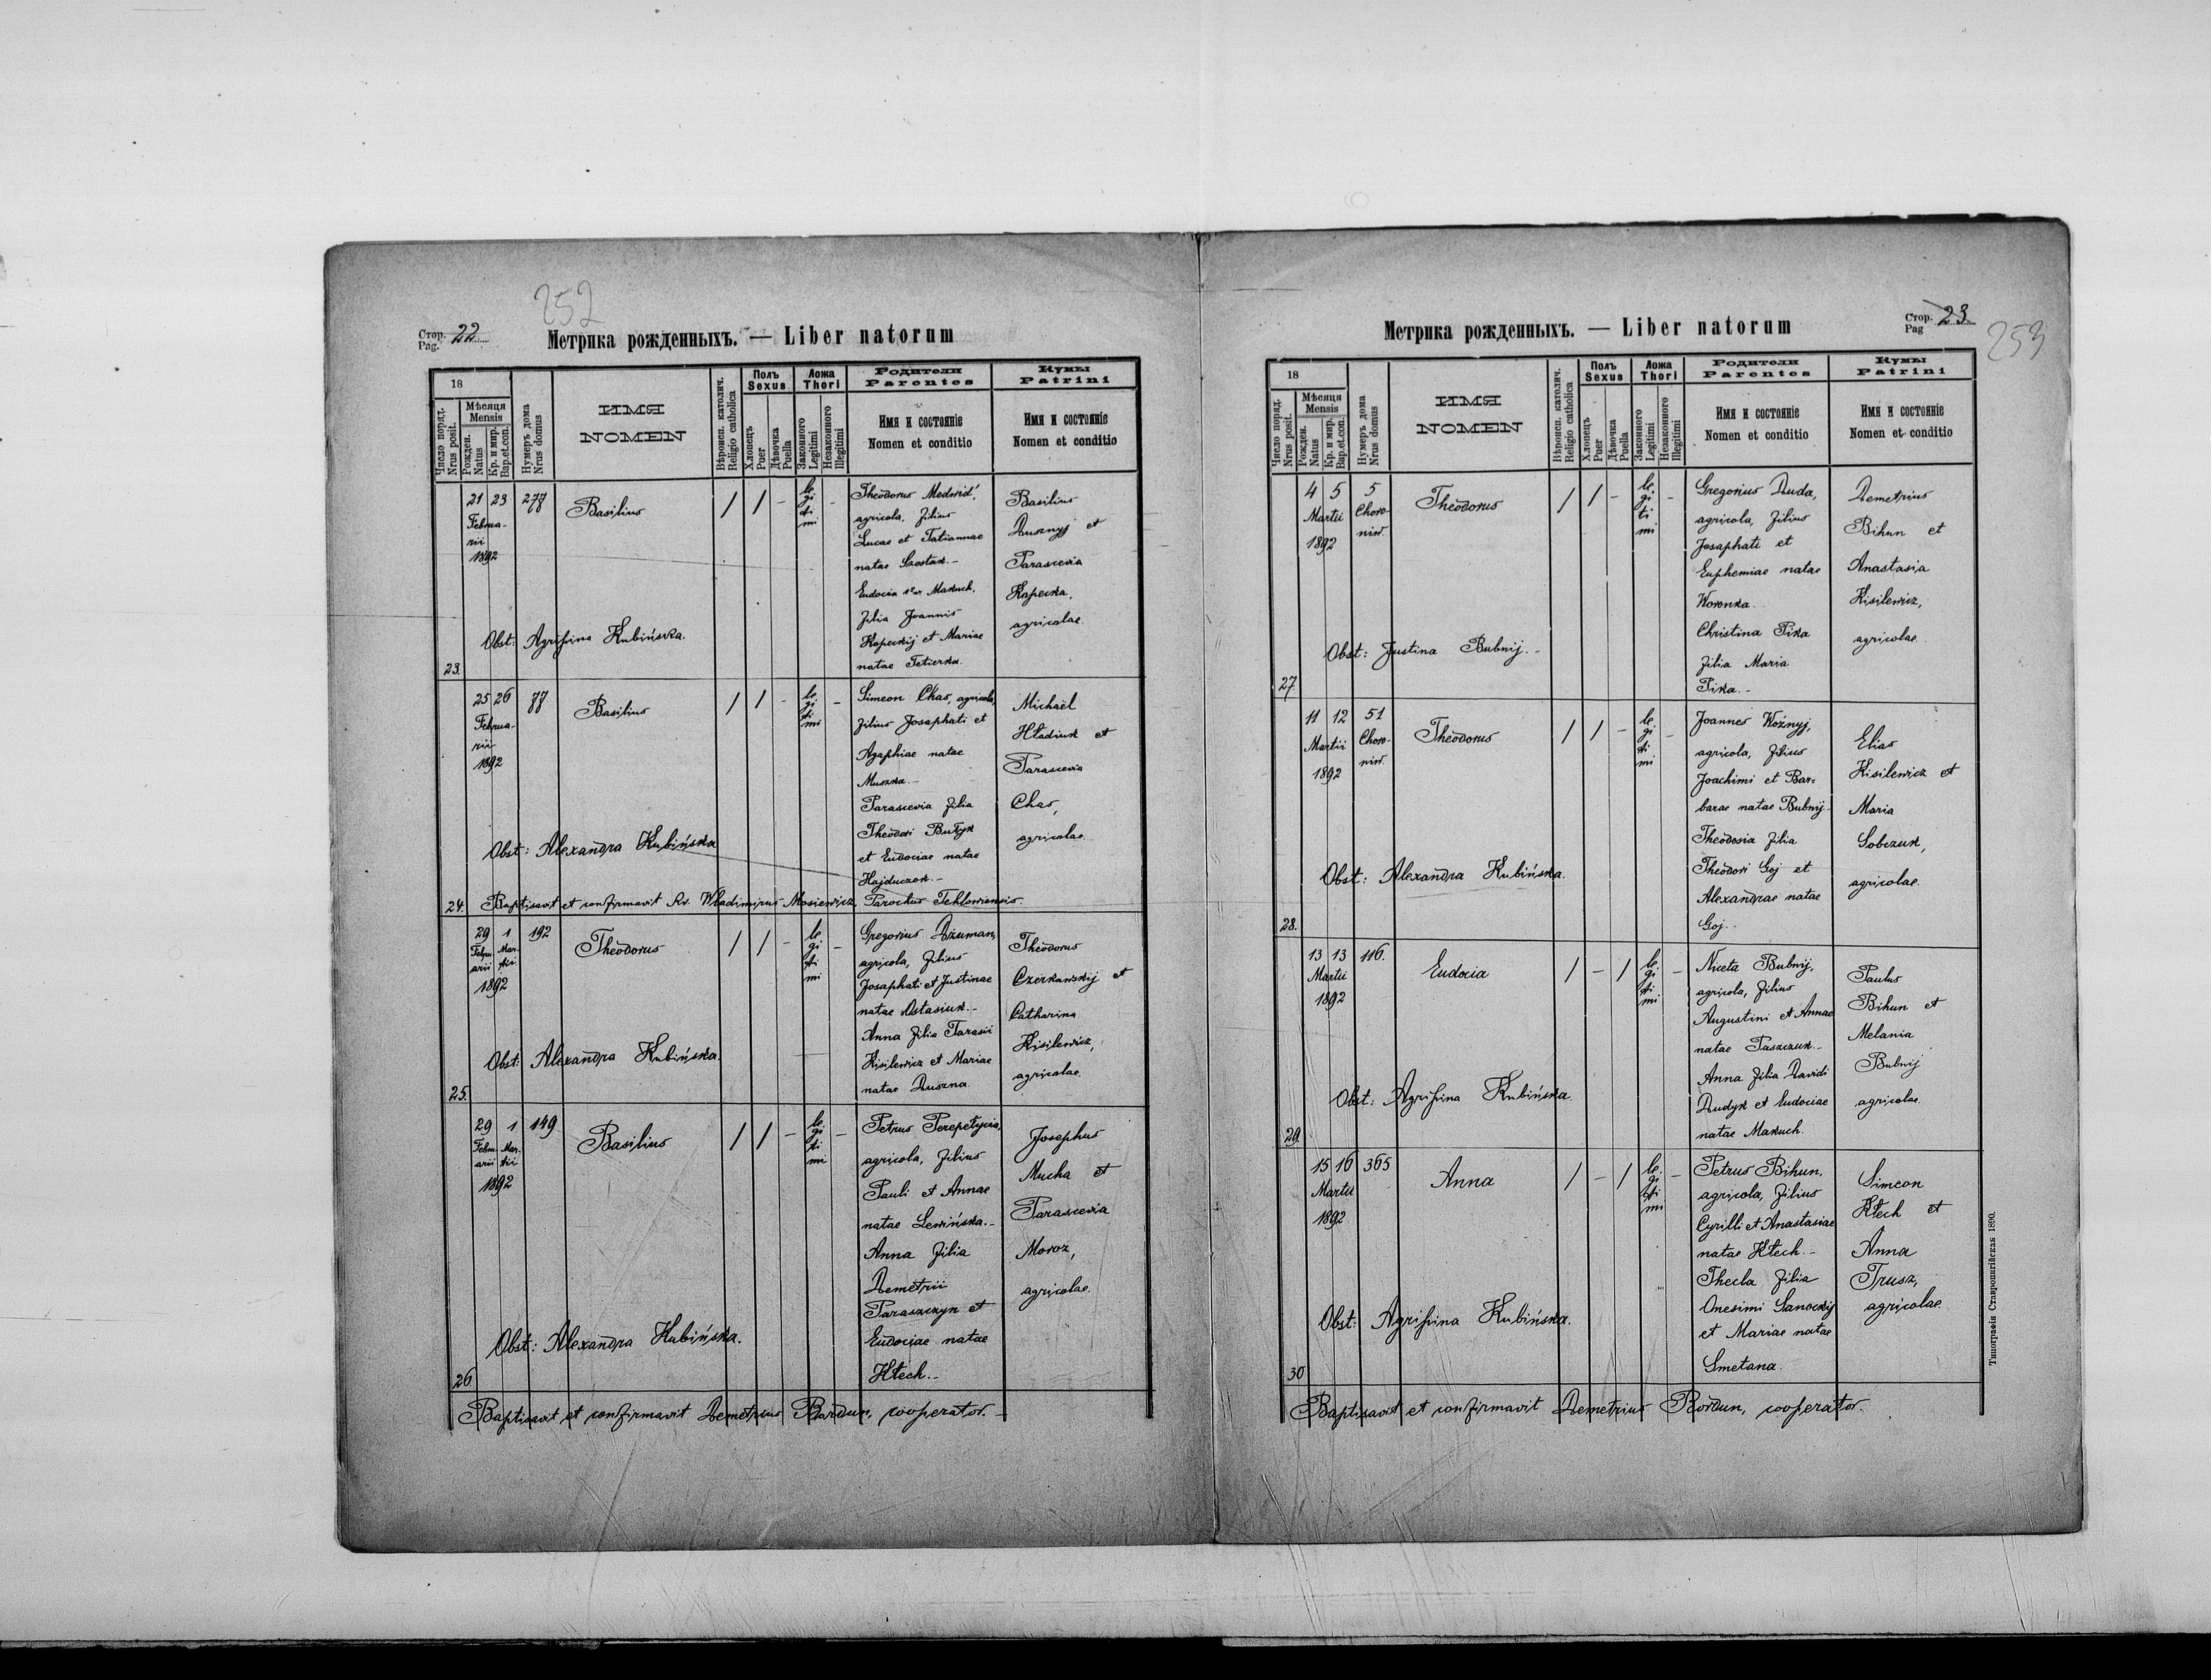 252
Стор. 22
Pag.
Метрика рожденныхъ. — Liber natorum
18
Число поряд.
Nrus posit.
Мѣсяця
Mensis
Рожден.
Natus
Кр. и мир.
Bap.et.con.
Нумеръ дома
Nrus domus
ИМЯ
NOMEN
Вѣроисп. католич.
Religio catholica
Полъ
Sexus
Хлопецъ
Puer
Дѣвочка
Puella
Ложа
Thori
Законного
Legitimi
Незаконного
Illegitimi
Родители
Parentes
Имя и состояніе
Nomen et conditio
Кумы
Patrini
Имя и состояніе
Nomen et conditio
23.
21 23
Februa-
rii
1892
277
Basilius
/ / -
le
gi
ti
mi
-
Theodorus Medwid',
agricola, filius
Lucae et Tatiannae
natae Szostak.-
Eudocia Makuch,
filia Joannis
Kapeckij et Mariae
natae Tetierka.
Basilius
Dusznyj et
Parascevia
Kapecka,
agricolae.
Obst: Agripina Kubińska.
24.
25 26
Februa-
rii
1892
77
Basilius
/ / -
le
gi
ti
mi
-
Simeon Chas, agricola,
filius Josaphati et
Agaphiae natae
Muszka.-
Parascevia filia
Theodori Butyk
et Eudociae natae
Hajduczok.-
Michaël
Hładiuk et
Parascevia
Chas,
agricolae.
Obst: Alexandra Kubińska
Baptisavit et confirmavit Rv. Wladimirus Mosiewicz, Parochus Tehlowiensis.
25.
29 1
Febru- Mar-
arii tii
1892
192
Theodorus
/ / -
le
gi
ti
mi
-
Gregorius Dżuman,
agricola, filius
Josaphati et Justinae
natae Ostasiuk.-
Anna filia Tarasii
Kisilewicz et Mariae
natae Duszna.
Theodorus
Czerkawskij et
Catharina
Kisilewicz,
agricolae.
Obst: Alexandra Kubińska.
26.
29 1
Febru- Mar-
arii tii
1892
149
Basilius
/ / -
le
gi
ti
mi
-
Petrus Perepełycia,
agricola, filius
Pauli et Annae
natae Lewińska.-
Anna filia
Demetrii
Paraszczyn et
Eudociae natae
Kłech.-
Josephus
Mucha et
Parascevia
Moroz,
agricolae.
Obst: Alexandra Kubińska.
Baptisavit et confirmavit Demetrius Bordun, cooperator.-
Стор. 23.
Pag
253
Метрика рожденныхъ. — Liber natorum
18
Число поряд.
Nrus posit.
Мѣсяця
Mensis
Рожден.
Natus
Кр. и мир.
Bap.et.con.
Нумеръ дома
Nrus domus
ИМЯ
NOMEN
Вѣроисп. католич.
Religio catholica
Полъ
Sexus
Хлопецъ
Puer
Дѣвочка
Puella
Ложа
Thori
Законного
Legitimi
Незаконного
Illegitimi
Родители
Parentes
Имя и состояніе
Nomen et conditio
Кумы
Patrini
Имя и состояніе
Nomen et conditio
27.
4 5
Martii
1892
5
Choro-
niw.
Theodorus
/ / -
le
gi
ti
mi
-
Gregorius Duda,
agricola, filius
Josaphati et
Euphemiae natae
Woronka.
Christina Pika
filia Maria
Pika.-
Demetrius
Bihun et
Anastasia
Kisilewicz,
agricolae.
Obst: Justina Bubnij.-
28.
11 12
Martii
1892
51
Choro-
niw.
Theodorus
/ / -
le
gi
ti
mi
-
Joannes Woźnyj,
agricola, filius
Joachimi et Bar-
barae natae Bubnij.-
Theodosia filia
Theodori Goj et
Alexandrae natae
Goj.-
Elias
Kisilewicz et
Maria
Sobczuk,
agricolae.
Obst: Alexandra Kubińska.
29.
13 13
Martii
1892
116.
Eudocia
/ - /
le
gi
ti
mi
-
Niceta Bubnij,
agricola, filius
Augustini et Annae
natae Paszczuk.-
Anna filia Davidi
Dudyk et Eudociae
natae Makuch.
Paulus
Bihun et
Melania
Bubnij
agricolae.
Obst: Agripina Kubińska.
30
15 16
Martii
1892
365
Anna
/ - /
le
gi
ti
mi
-
Petrus Bihun,
agricola, filius
Cyrilli et Anastasiae
natae Kłech.-
Thecla filia
Onesimi Sanockij
et Mariae natae
Smetana.
Simeon
Kłech et
Anna
Trusz,
agricolae.
Obst: Agripina Kubińska.
Baptisavit et confirmavit Demetrius Bordun, cooperator.
Типографія Ставропигійская 1890.